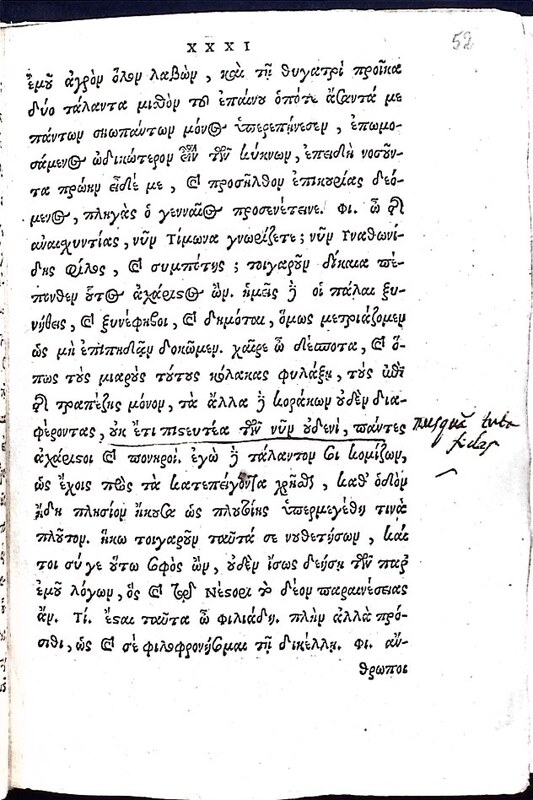 XXXI
52
ἐμοῦ ἀγρὸν ὅλον λαβὼν, καὶ τῇ θυγατρὶ προῖκα
δύο τάλαντα μισθὸν τοῦ ἐπαίνου ὁπότε ᾄσαντά με
πάντων σιωπάντων μόνος ὑπερεπῄνεσεν, ἐπωμο-
σάμενος ᾠδικώτερον εἶναι τῶν κύκνων, ἐπειδὴ νοσοῦν-
τα πρώην εἶδέ με, καὶ προσῆλθον ἐπικουρίας δεό-
μενος, πληγὰς ὁ γενναῖος προσενέτεινε. Φι. ὦ τῆς
ἀναισχυντίας, νῦν Τίμωνα γνωρίζετε; νῦν Γναθωνί-
δης φίλος, καὶ συμπότης; τοιγαροῦν δίκαια πέ-
πονθεν οὗτος ἀχάριστος ὤν. ἡμεῖς δὲ οἱ πάλαι ξυ-
νήθεις, καὶ ξυνέφηβοι, καὶ δημόται, ὅμως μετριάζομεν
ὡς μὴ ἐπιπηδᾷν δοκῶμεν. χαῖρε ὦ δέσποτα, καὶ ὅ-
πως τοὺς μιαροὺς τούτους κόλακας φυλάξῃ, τοὺς ἐπὶ
τῆς τραπέζης μόνον, τὰ ἄλλα δὲ κοράκων οὐδὲν δια-
φέροντας, οὐκ ἔτι πιστευτέα τῶν νῦν οὐδενὶ, πάντες
nusquā tuta
fides
ἀχάριστοι καὶ πονηροί. ἐγὼ δὲ τάλαντον σοι κομίζων,
ὡς ἔχοις πρὸς τὰ κατεπείγοντα χρῆσθαι, καθ' ὁδὸν
ἤδη πλησίον ἤκουσα ὡς πλουτοίης ὑπερμεγέθη τινὰ
πλοῦτον. ἥκω τοιγαροῦν ταῦτά σε νουθετήσων, καί
τοι σύ γε οὕτω σοφὸς ὢν, οὐδὲν ἴσως δεήσῃ τῶν παρ'
ἐμοῦ λόγων, ὃς καὶ τῷ Νέστορι τὸ δέον παραινέσειας
ἄν. Τί. ἔσται ταῦτα ὦ φιλιάδη. πλὴν ἀλλὰ πρό-
σιθι, ὡς καὶ σὲ φιλοφρονήσομαι τῇ δικέλλῃ. Φι. ἄν-
θρωποι